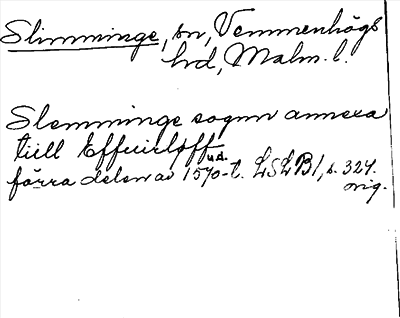 Slimminge, sn, Vemmenhögs
hd, Malm. l.
Slemminge sognn annexa
till Effuerløff
u.d.
förra delen av 1570-t. LSLB 1, s. 324.
orig.